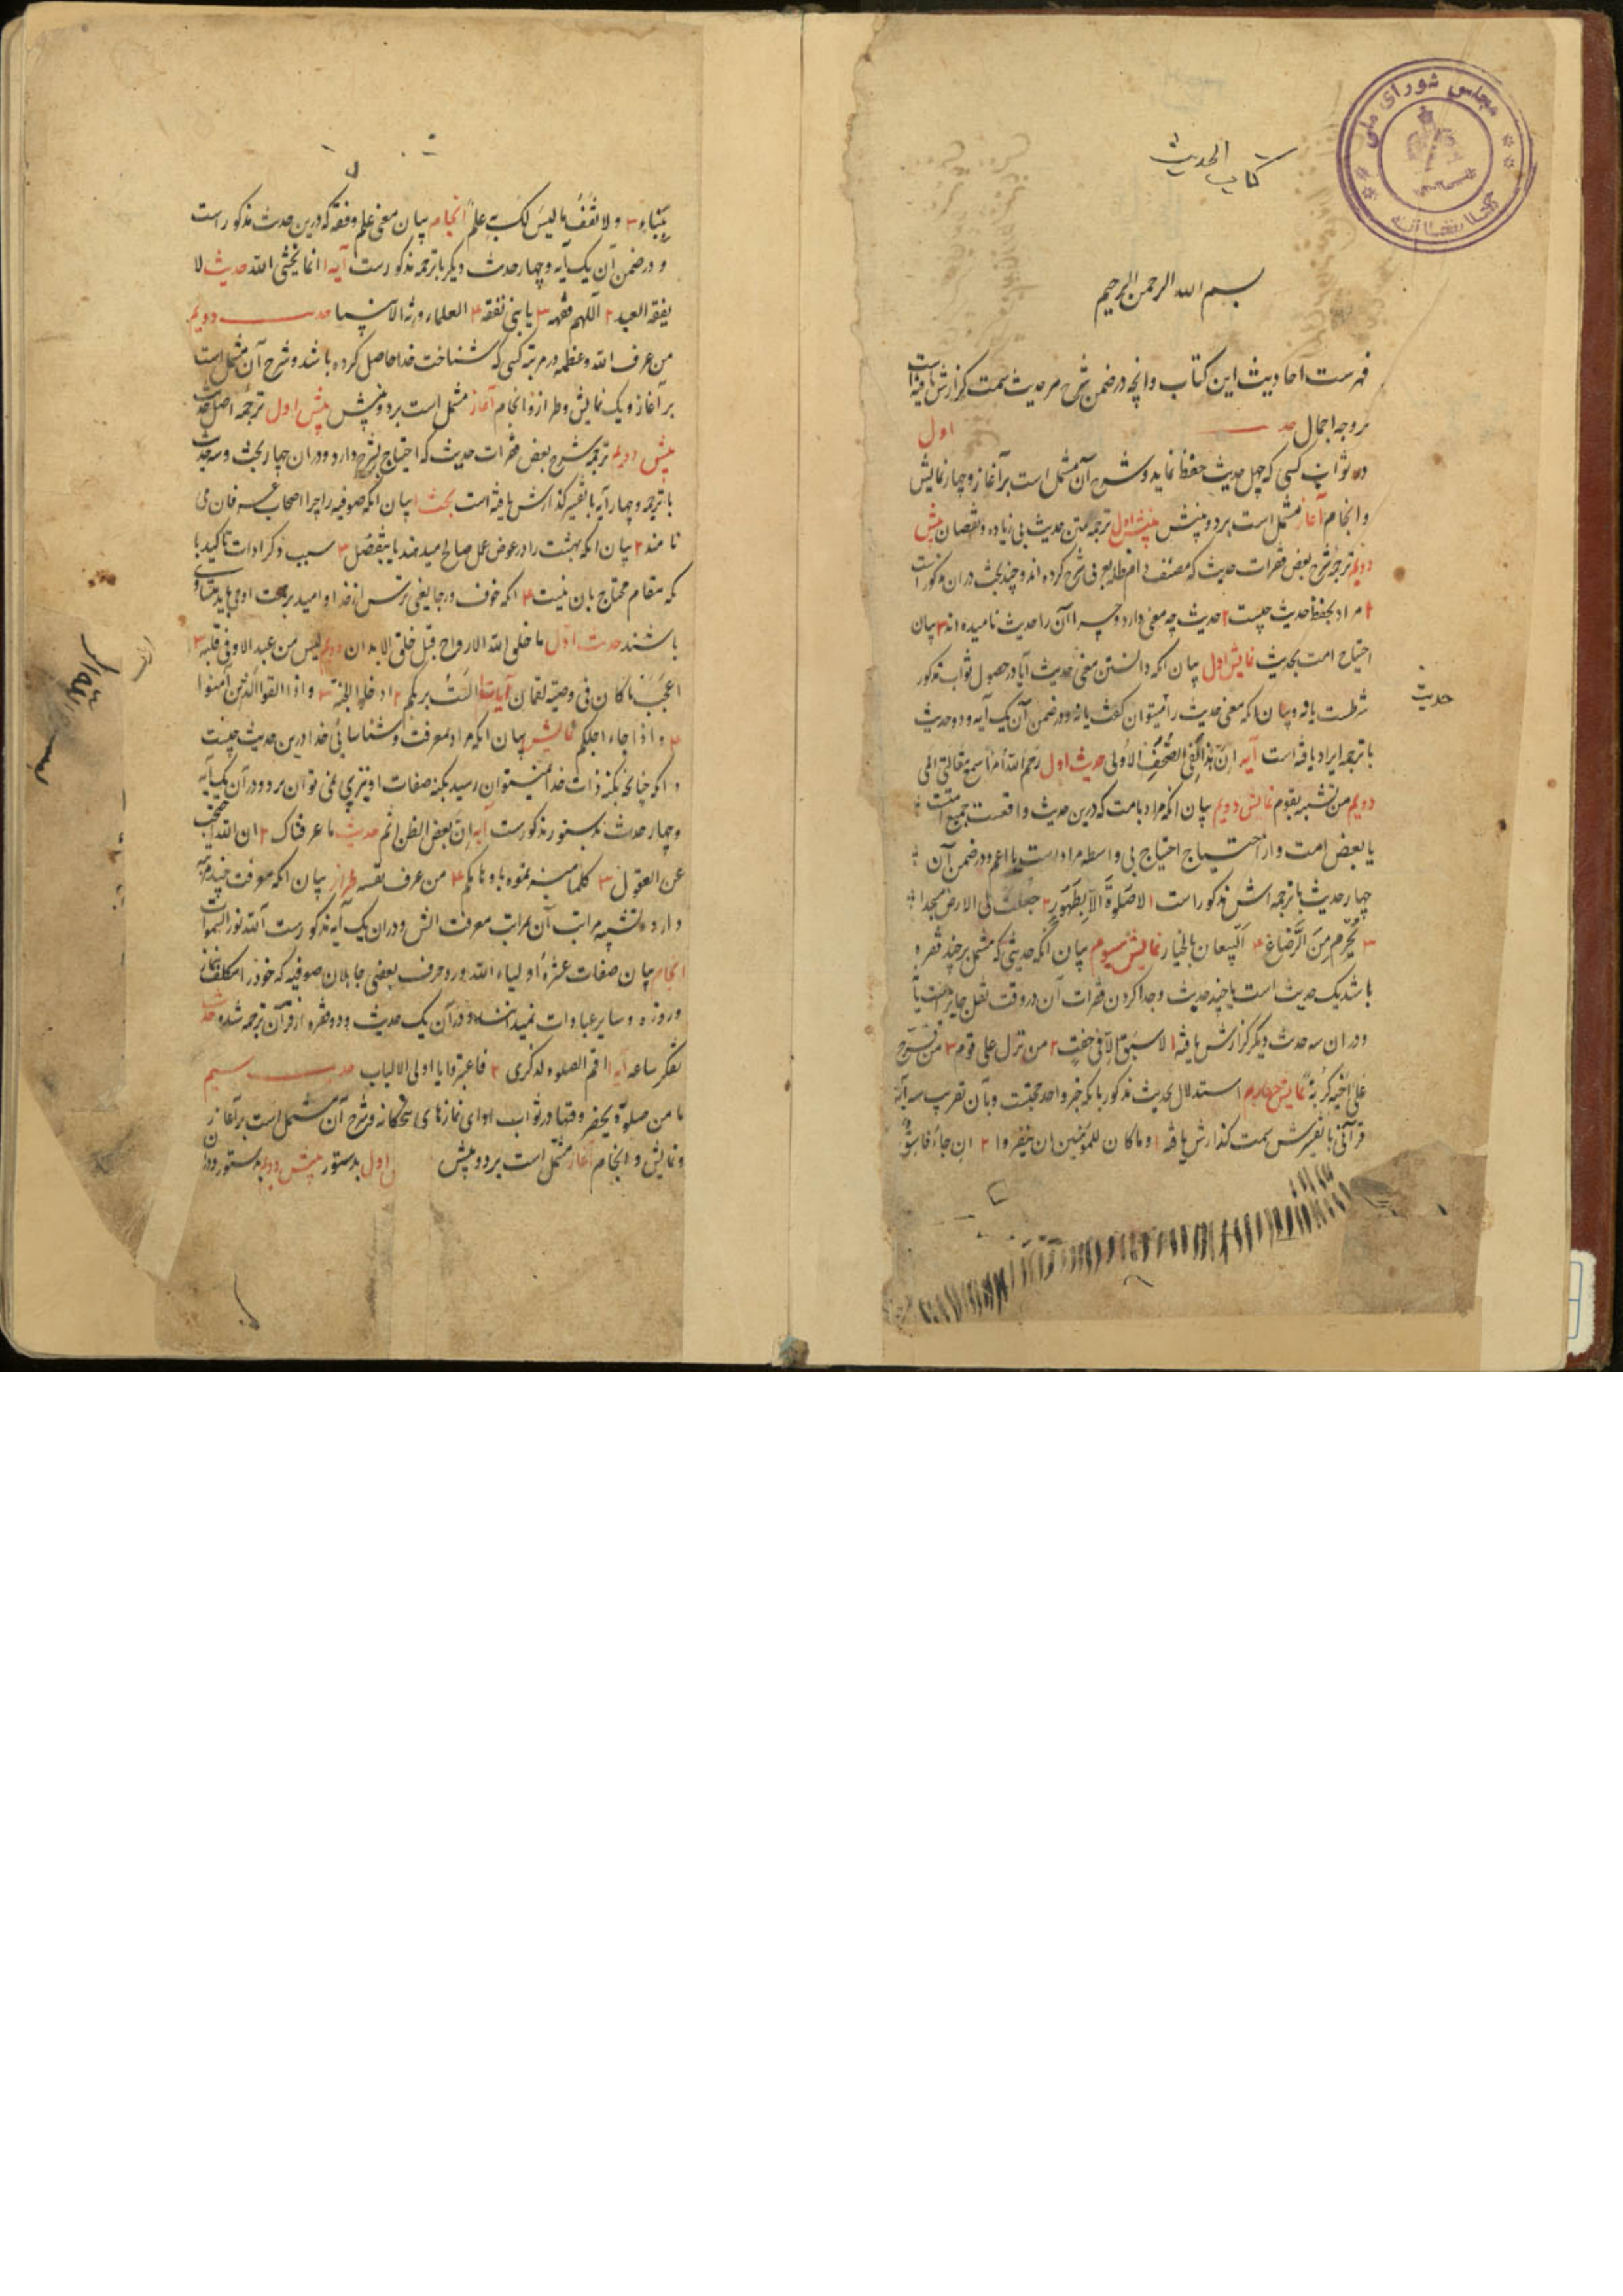 مجلس شورای ملی
کتاب الحدیث
بسم الله الرحمن الرحیم
فهرست احادیث این کتاب و آنچه در ضمن شرح هر حدیث سمت گزارش یافته است
بر وجه اجمال حدیث اول
در ثواب کسی که چهل حدیث حفظ نماید و شرح آن مشتمل است بر آغاز و چهار نمایش
و انجام آغاز مشتمل است بر دو بینش بینش اول ترجمه متن حدیث بی زیاده و نقصان بینش
دویم ترجمه شرح بعض فقرات حدیث که مصنف دام ظله بعربی شرح کرده اند و چند بحث در ان مذکور است
۱ مراد بحفظ حدیث چیست ۲ حدیث چه معنی دارد و چرا آن را حدیث نامیده اند ۳ بیان
احتیاج امت بحدیث نمایش اول بیان آنکه دانستن معنی حدیث آیا در حصول ثواب مذکور
حدیث
شرطست یا نه و بیان آنکه معنی حدیث را میتوان گفت یا نه و در ضمن آن یک آیه و دو حدیث
با ترجمه ایراد یافته است آیه اِنَّ هٰذا لَفِی الصُّحُفِ الاُولی حدیث اول رَحِمَ اللّٰه اُمرأ سمع مقالتی الی
دویم من تشبه بقوم نمایش دویم بیان آنکه مراد بامت که درین حدیث واقعست جمیع امتست
یا بعض امت و از احتیاج احتیاج بی واسطه مراد است یا اعم و در ضمن آن
چهار حدیث با ترجمه اش مذکور است ۱ لا صَلوةَ اِلّا بِطَهورٍ ۲ جُعِلَت لی الارض مسجدا
۳ یَحرُمُ مِنَ الرَّضاعِ ۴ اَلبَیِّعان بالخیار نمایش سیوم بیان آنکه حدیثی که مشتمل بر چند فقره
باشد یک حدیث است یا چند حدیث و جدا کردن فقرات آن در وقت نقل جایز هست یا نه
و در ان سه حدیث دیگر گزارش یافته ۱ لا سَبَقَ اِلّا فی خف ۲ من نزل علی قوم ۳ مَن فَرَّج
عَلی اَخیهِ کُربَةً نمایش چهارم استدلال بحدیث مذکور بآنکه خبر واحد حجتست و بآن تقریب سه آیه
قرآنی با تفسیرش سمت گذارش یافته ۱ و ما کان للمؤمنین ان ینفروا ۲ ان جاءَ فاسِقٌ
بِنَباءٍ ۳ و لا تَقفُ ما لیسَ لَکَ بِهِ عِلمٌ انجام بیان معنی علم و فقه که درین حدیث مذکور است
و در ضمن آن یک آیه و چهار حدیث دیگر با ترجمه مذکور است آیه انما یخشی الله حدیث ۱ لا
یفقه العبد ۲ اللهم فقهه ۳ یا بنی تفقه ۴ العلماء ورثه الانبیا حدیث دویم
من عرف الله و عظمه در مرتبه کسی که شناخت خدا حاصل کرده باشد و شرح آن مشتمل است
بر آغاز و یک نمایش و طراز و انجام آغاز مشتمل است بر دو بینش بینش اول ترجمه اصل حدیث
بینش دویم ترجمه شرح بعض فقرات حدیث که احتیاج بشرح دارد و در ان چهار بحث و سه حدیث
با ترجمه و چهار آیه با تفسیر گذارش یافته است بحث ۱ بیان آنکه صوفیه را چرا اصحاب عرفان می
نامند ۲ بیان آنکه بهشت را در عوض عمل صالح میدهند یا بتفضل ۳ سبب ذکر ادات تاکید با
آنکه مقام محتاج بان نیست ۴ آنکه خوف و رجا یعنی ترس از خدا و امید برحمت او می باید متساوی
باشند حدیث اول ما خلق الله الارواح قبل خلق الابدان دویم لیس من عبد الا و فی قلبه ۳
اعجب ما کان فی وصیة لقمان آیات ۱ الست بربکم ۲ ادخلوا الجنة ۳ و اذا القوا الذین آمنوا
۴ و اذا جاء اجلکم نمایش بیان آنکه مراد بمعرفت و شناسائی خدا درین حدیث چیست
و آنکه چنانچه بکنه ذات خدا نمیتوان رسید بکنه صفات او نیز پی نمی توان برد و در آن یک آیه
و چهار حدیث بدستور مذکور است آیه ان بعض الظن اثم حدیث ۱ ما عرفناک ۲ ان الله احتجب
عن العقول ۳ کلما میزتموه باوهامکم ۴ من عرف نفسه طراز بیان آنکه معرفت چند مرتبه
دارد و تشبیه مراتب آن بمراتب معرفت آتش و در ان یک آیه مذکور است الله نور السموات
انجام بیان صفات عشره اولیاء الله و رد حرف بعضی جاهلان صوفیه که خود را مکلف بنماز
و روزه و سایر عبادات نمیدانند و در آن یک حدیث و دو فقره از قرآن ترجمه شده حدیث
تفکر ساعه آیه ۱ اقم الصلوه لذکری ۲ فاعتبروا یا اولی الالباب حدیث سیم
ما من صلوة یحضر وقتها در ثواب ادای نمازهای پنجگانه و شرح آن مشتمل است بر آغاز
و نمایش و انجام آغاز مشتمل است بر دو بینش اول بدستور بینش دویم بدستور و در ان